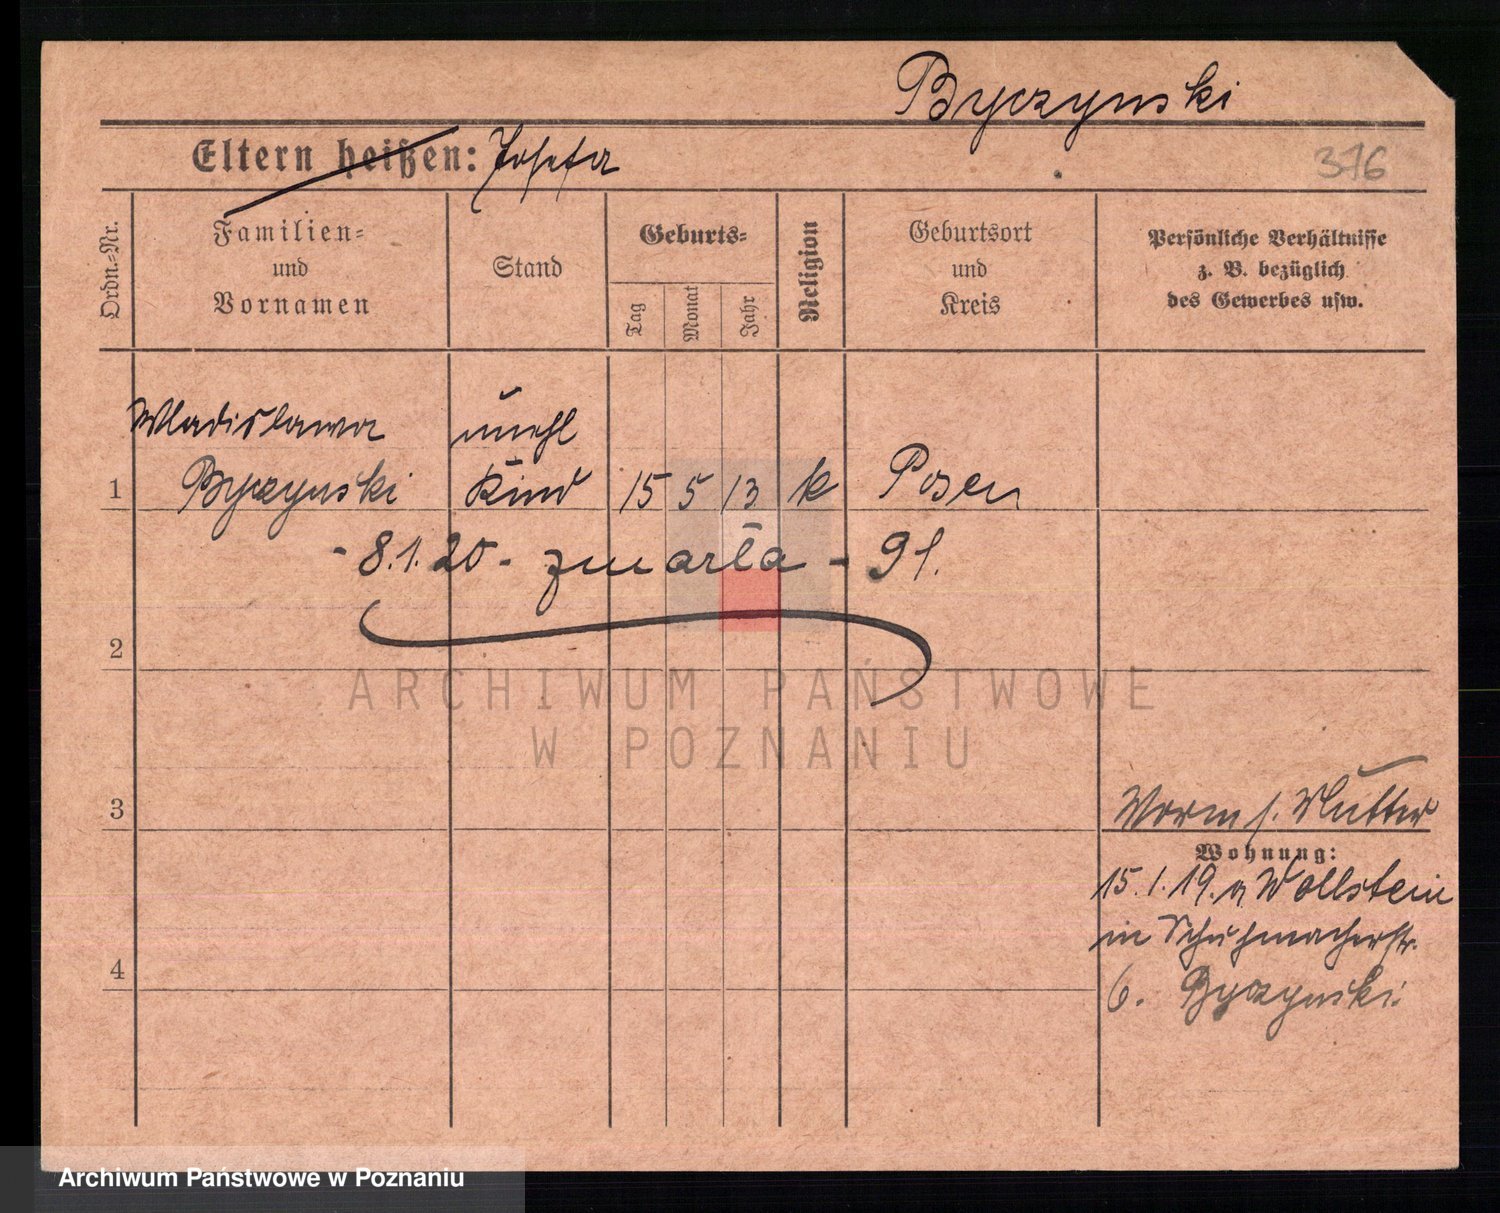 Byczynski
Eltern heißen: Josefa
376
Ordn.-Nr.
Familien-
und
Vornamen
Stand
Geburts-
Tag
Monat
Jahr
Religion
Geburtsort
und
Kreis
Persönliche Verhältnisse
z. B. bezüglich
des Gewerbes usw.
Wladislawa unehl
1 Byczynski Kind 15 5 13 k Posen
- 8.1.20 - zmarła - 91.
2
ARCHIWUM PAŃSTWOWE
W POZNANIU
3
Worm s. Mutter
Wohnung:
15.1.19. a Wollstein
in Schuhmacherstr.
4
6. Byczynski.
Archiwum Państwowe w Poznaniu